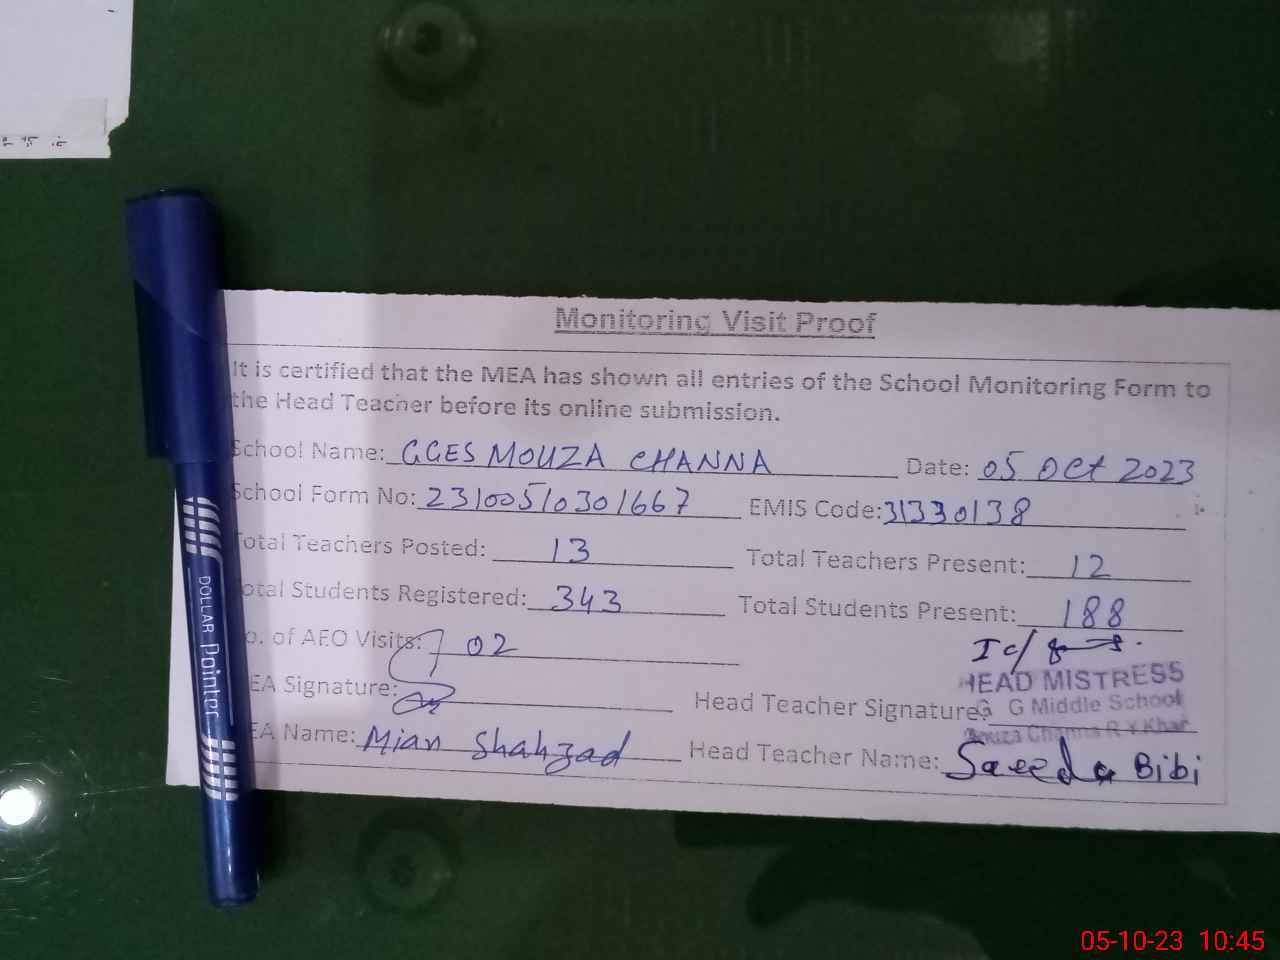 Monitoring Visit Proof
It is certified that the MEA has shown all entries of the School Monitoring Form to
the Head Teacher before its online submission.
School Name: GGES MOUZA CHANNA Date: 05 Oct 2023
School Form No: 23100510301667 EMIS Code: 31330138
Total Teachers Posted: 13 Total Teachers Present: 12
Total Students Registered: 343 Total Students Present: 188
o. of AEO Visits: 02
I c/
HEAD MISTRESS
EA Signature: Head Teacher Signature:
G G Middle School
Mouza Channa R Y Khan
EA Name: Mian Shahzad Head Teacher Name: Saeeda Bibi
DOLLAR Pointer
05-10-23 10:45